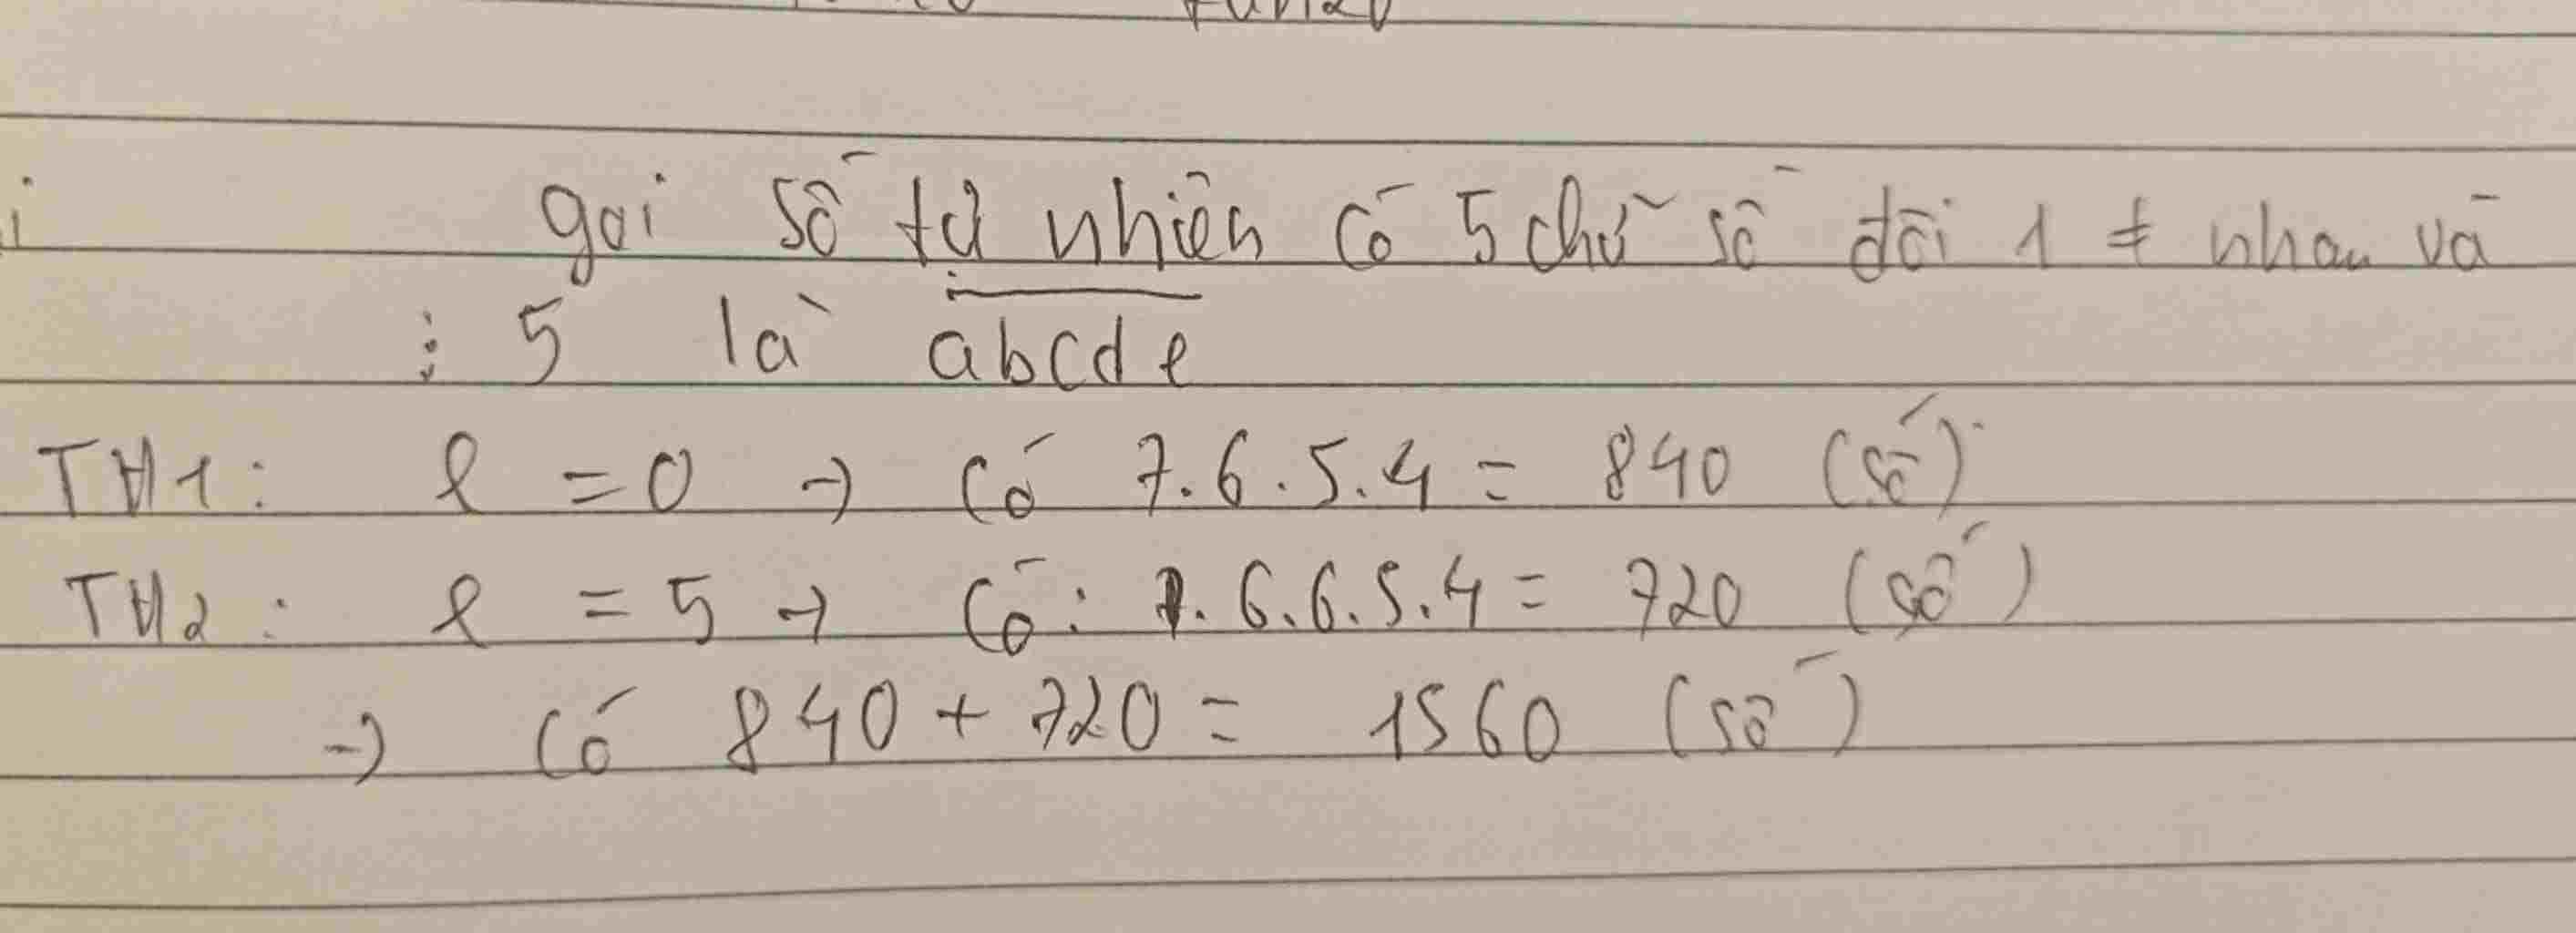 gọi số tự nhiên có 5 chữ số đôi 1 ≠ nhau và
⋮ 5 là abcde
TH1: e = 0 → có 7.6.5.4 = 840 (số)
TH2: e = 5 → có: 1.6.6.5.4 = 720 (số)
→ có 840 + 720 = 1560 (số)